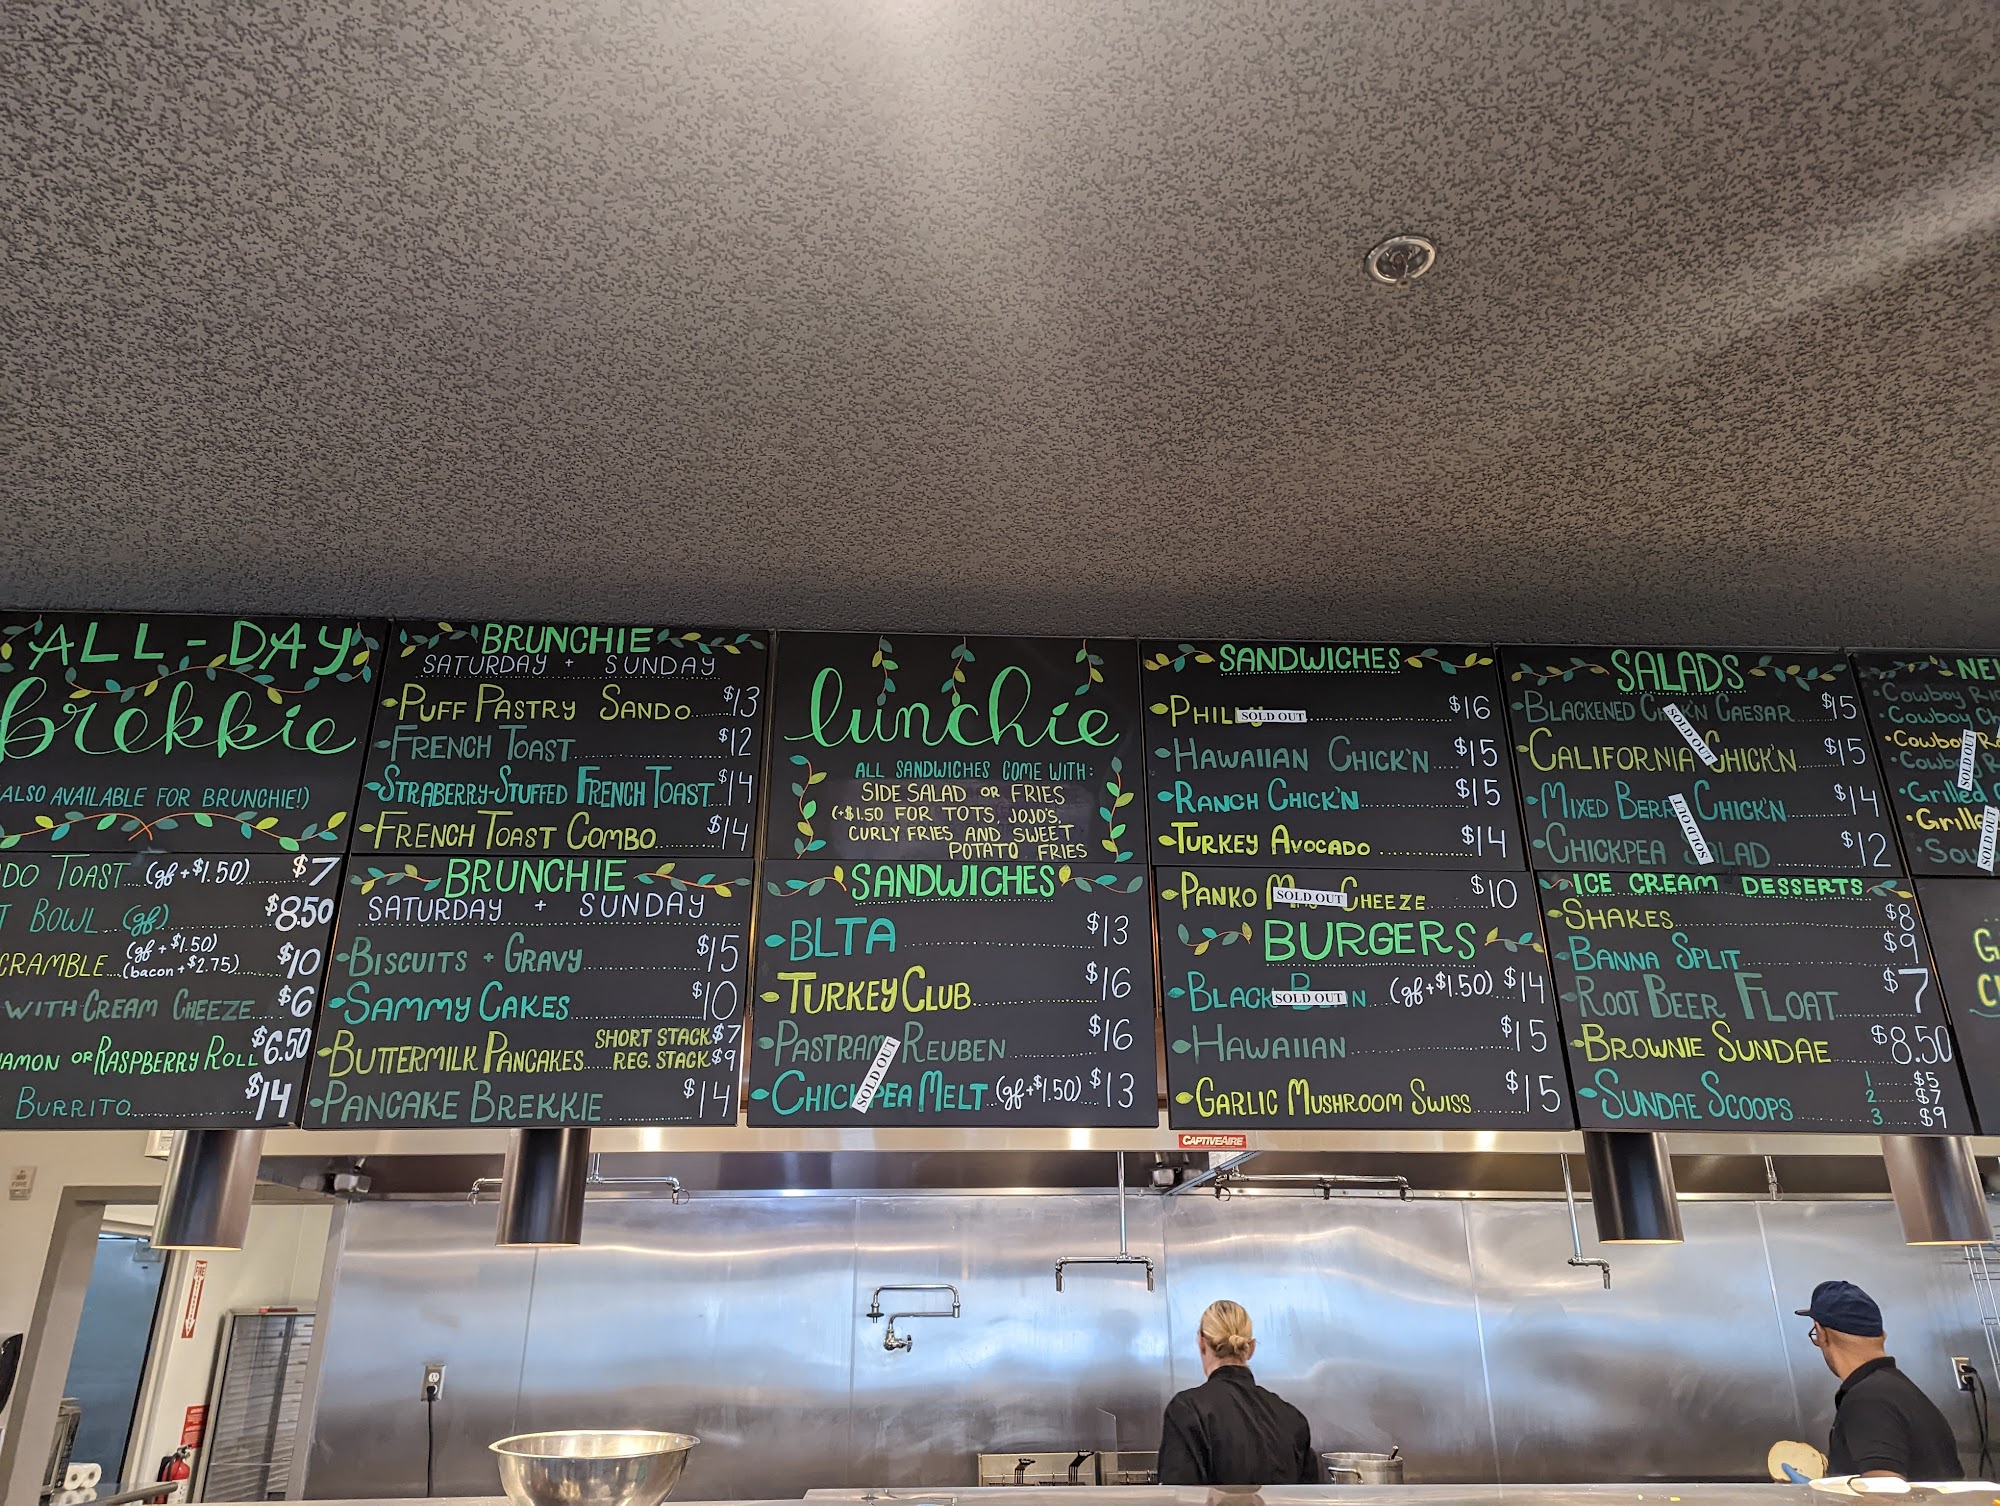 ALL-DAY
brekkie
ALSO AVAILABLE FOR BRUNCHIE!)
DO TOAST (gf +$1.50) $7
BOWL (gf) $8.50
CRAMBLE (gf +$1.50) (bacon +$2.75) $10
WITH CREAM CHEEZE $6
AMON OR RASPBERRY ROLL $6.50
BURRITO $14
BRUNCHIE
SATURDAY + SUNDAY
PUFF PASTRY SANDO $13
FRENCH TOAST $12
STRABERRY-STUFFED FRENCH TOAST $14
FRENCH TOAST COMBO $14
BRUNCHIE
SATURDAY + SUNDAY
BISCUITS + GRAVY $15
SAMMY CAKES $10
BUTTERMILK PANCAKES SHORT STACK $7
REG. STACK $9
PANCAKE BREKKIE $14
lunchie
ALL SANDWICHES COME WITH:
SIDE SALAD OR FRIES
(+$1.50 FOR TOTS, JOJO'S,
CURLY FRIES AND SWEET
POTATO FRIES
SANDWICHES
BLTA $13
TURKEY CLUB $16
PASTRAMI REUBEN $16
SOLD OUT
CHICKPEA MELT (gf +$1.50) $13
SANDWICHES
PHILLY SOLD OUT $16
HAWAIIAN CHICK'N $15
RANCH CHICK'N $15
TURKEY AVOCADO $14
PANKO SOLD OUT CHEEZE $10
BURGERS
BLACK BEAN SOLD OUT (gf +$1.50) $14
HAWAIIAN $15
GARLIC MUSHROOM SWISS $15
SALADS
BLACKENED CHICK'N CAESAR $15
SOLD OUT
CALIFORNIA CHICK'N $15
MIXED BERRY CHICK'N $14
SOLD OUT
CHICKPEA SALAD $12
ICE CREAM DESSERTS
SHAKES $8
BANNA SPLIT $9
ROOT BEER FLOAT $7
BROWNIE SUNDAE $8.50
SUNDAE SCOOPS 1 $5
2 $7
3 $9
NE
Cowboy
Cowboy Ch
Cowboy
Cowboy
SOLD OUT
Grilled
Grille
SOLD OUT
Sou
G
C
CAPTIVEAIRE
FIRE